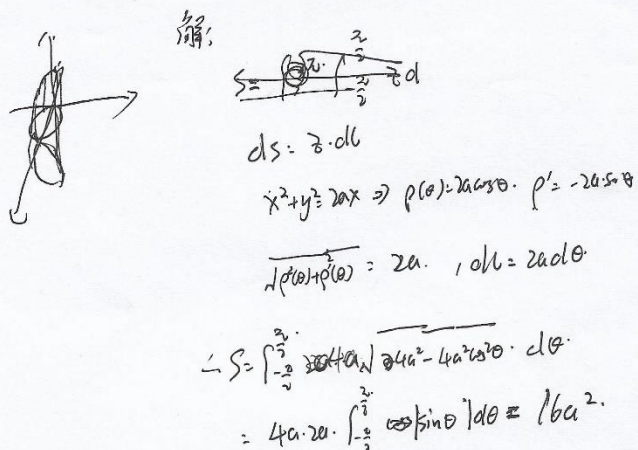 解:
ds = z·dl
x²+y²=2ax ⇒ ρ(θ)=2acosθ. ρ'=-2a·sinθ
√ρ²(θ)+ρ'²(θ) = 2a. , dl = 2adθ.
∴ S = ∫_{-π/2}^{π/2} 4a√4a²-4a²cos²θ · dθ.
= 4a·2a·∫_{-π/2}^{π/2} |sinθ|dθ = 16a².